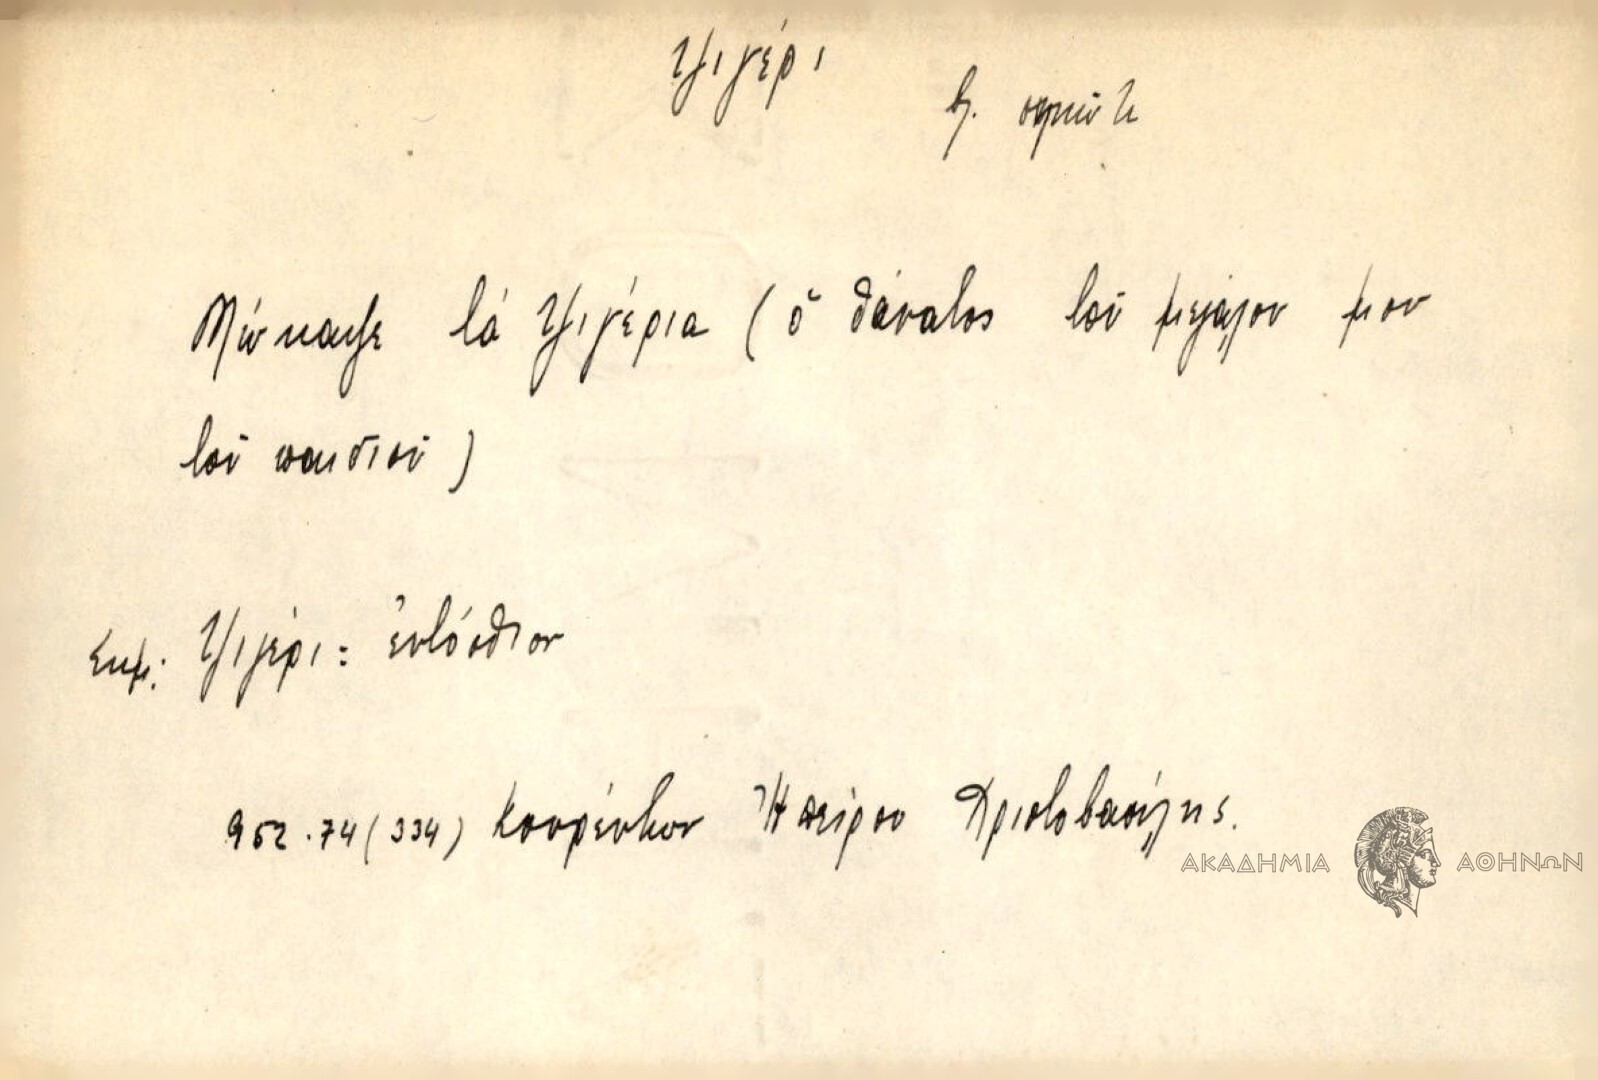 τζιγέρι
βλ. συκώτι
Μὤκαψε τὰ τζιγέρια (ὁ θάνατος τοῦ μεγάλου μου
τοῦ παιδιοῦ)
Σημ: τζιγέρι: ἐντόσθιον
952.74 (334) Κουρέντων Ἠπείρου Χριστοβασίλης.
ΑΚΑΔΗΜΙΑ ΑΘΗΝΩΝ